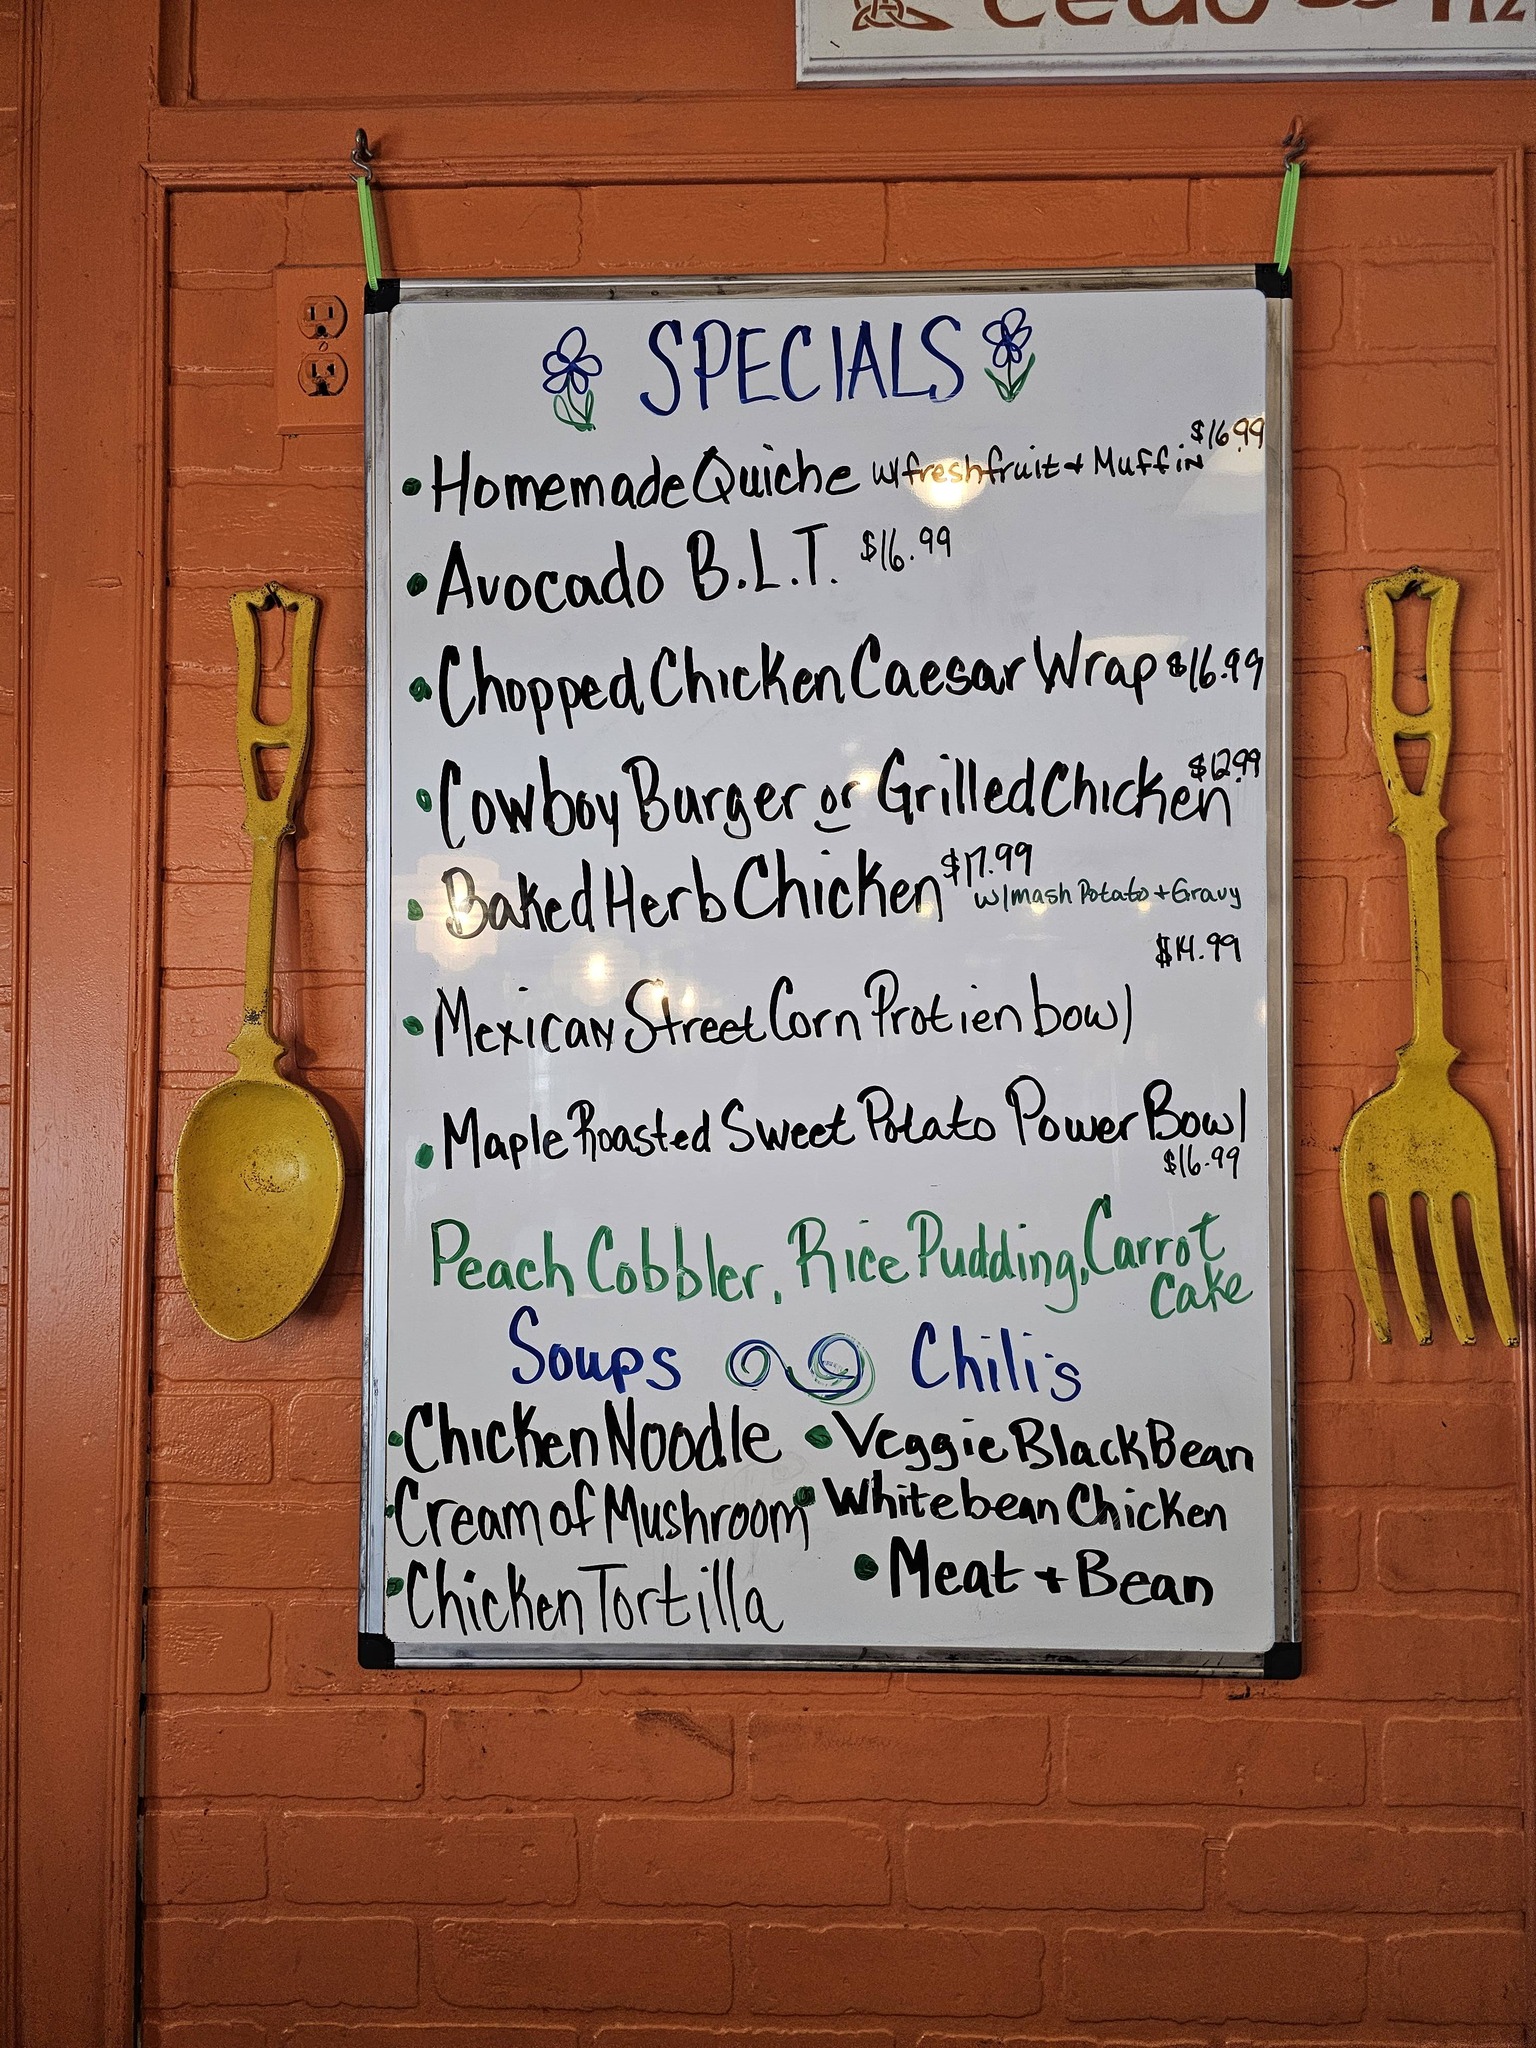 SPECIALS
• Homemade Quiche w/fresh fruit + Muffin $16.99
• Avocado B.L.T. $16.99
• Chopped Chicken Caesar Wrap $16.99
• Cowboy Burger or Grilled Chicken $12.99
• Baked Herb Chicken $17.99
w/mash Potato + Gravy
$14.99
• Mexican Street Corn Protien bowl
• Maple Roasted Sweet Potato Power Bowl
$16.99
Peach Cobbler, Rice Pudding, Carrot
Cake
Soups Chili's
• Chicken Noodle • Veggie Black Bean
• Cream of Mushroom • White bean Chicken
• Chicken Tortilla • Meat + Bean